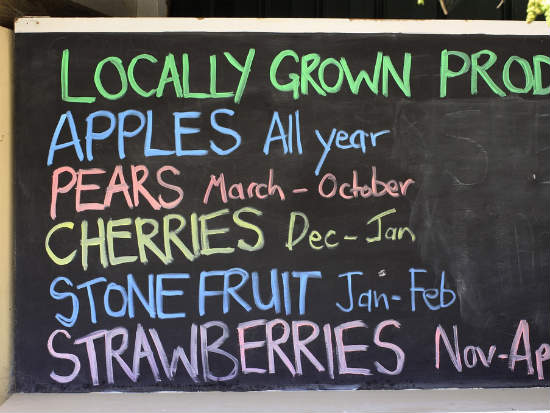 LOCALLY GROWN PROD
APPLES All year
PEARS March - October
CHERRIES Dec - Jan
STONE FRUIT Jan - Feb
STRAWBERRIES Nov - Ap